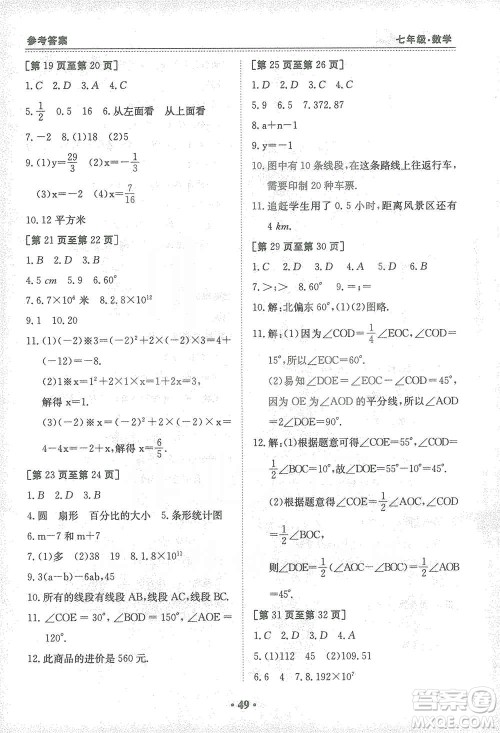 参考答案
七年级·数学
[第19页至第20页]
1.C 2.D 3.A 4.C
5.1/2 0.5 6.从左面看 从上面看
7.-2 8.(1)18 (2)37
9.(1)y=29/3 (2)x=4
(3)x=-7/16 (4)x=-
10.12平方米
[第21页至第22页]
1.B 2.D 3.D
4.5 cm 5.0.5 6.60°
7.6.7×10⁴ 8.2.8×10¹³
9.1 10.20
11.(1)(-2)※3=(-2)²+2×(-2)×3=4-12=-8.
(2)1※x=1²+2×1×x=3,
解得x=1.
(3)(-2)※x=(-2)²+2×(-2)×x=
4-4x=-2+x,解得x=6/5.
[第23页至第24页]
1.B 2.D 3.A
4.圆 扇形 百分比的大小 5.条形统计图
6.m+7
7.(1)多 (2)20 8.3×10¹³
9.3(a-b)-6ab,45
10.原有的有线电视用户线长为91米.
11.∠COE=30°,∠BOD=150°,∠AOE=
120°.
12.此商品的进价是560元.
[第25页至第26页]
1.C 2.D 3.A 4.A
5.9 6.5 7.372.87
8.a+n-1
9.
10.图中有10条线段,在这条路线上往返行车,
需要印制20种车票.
11.追赶学生用了0.5小时,距离风景区还有
4 km.
[第29页至第30页]
1.C 2.C 3.B 4.A
5.9 6.80°
7.>;>;= 8.65° 9.60°
10.解:北偏东70°(2)图略.
11.解:(1)因为∠COD=1/4∠EOC,∠COD=
15°,所以∠COE=60°.
(2)易知∠DOE=∠COE-∠COD=45°.
因为OE为∠AOD的平分线,所以∠AOD=
2∠DOE=90°.
12.解:(1)根据题意可得∠COE=55°,∠COD
=1/2∠BOC=10°,则∠DOE=45°.
(2)根据题意可得∠COE=1/2∠AOC,∠COD
=1/2∠BOC,
则∠DOE=1/2∠AOC-1/2∠BOC=1/2∠AOB
=45°.
[第31页至第32页]
1.C 2.D 3.A
4.(1)25°12′ (2)109.51
5.6 6.4 7.1.302×10⁷
· 49 ·